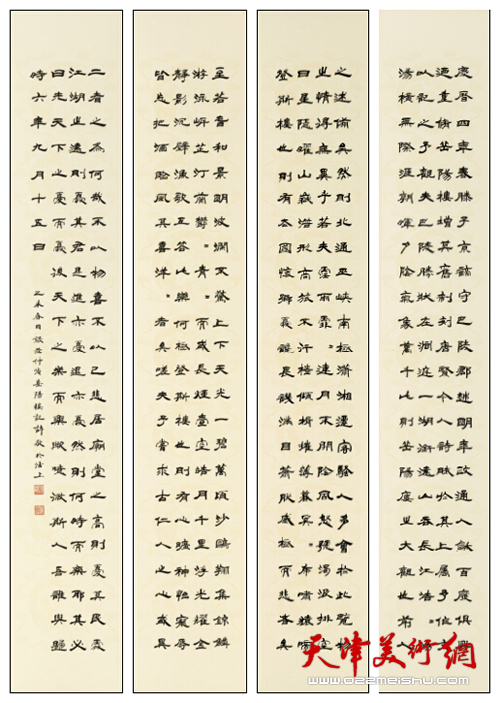 慶曆四年春滕子京謫守巴陵郡越明年政通人和百廢俱興
迺重修岳陽樓增其舊制刻唐賢今人詩賦于其上屬予作文
以記之予觀夫巴陵勝狀在洞庭一湖銜遠山吞長江浩〻
湯〻橫無際涯朝暉夕陰氣象萬千此則岳陽樓之大觀也前人
之述備矣然則北通巫峽南極瀟湘遷客騷人多會於此覽物
之情得無異乎若夫霪雨霏〻連月不開陰風怒號濁浪排空
日星隱耀山嶽潛形商旅不行檣傾楫摧薄暮冥〻虎嘯猿啼
登斯樓也則有去國懷鄉憂讒畏譏滿目蕭然感極而悲者矣
至若春和景明波瀾不驚上下天光一碧萬頃沙鷗翔集錦鱗
游泳岸芷汀蘭鬱〻青〻而或長煙一空皓月千里浮光耀金
靜影沉璧漁歌互答此樂何極登斯樓也則有心曠神怡寵辱
皆忘把酒臨風其喜洋〻者矣嗟夫予嘗求古仁人之心或異
二者之為何哉不以物喜不以己悲居廟堂之高則憂其民處
江湖之遠則憂其君是進亦憂退亦憂然則何時而樂耶其必
曰先天下之憂而憂後天下之樂而樂歟噫微斯人吾誰與歸
時六年九月十五日
乙未春月錄范仲淹岳陽樓記
天津美術網
www.022meishu.com